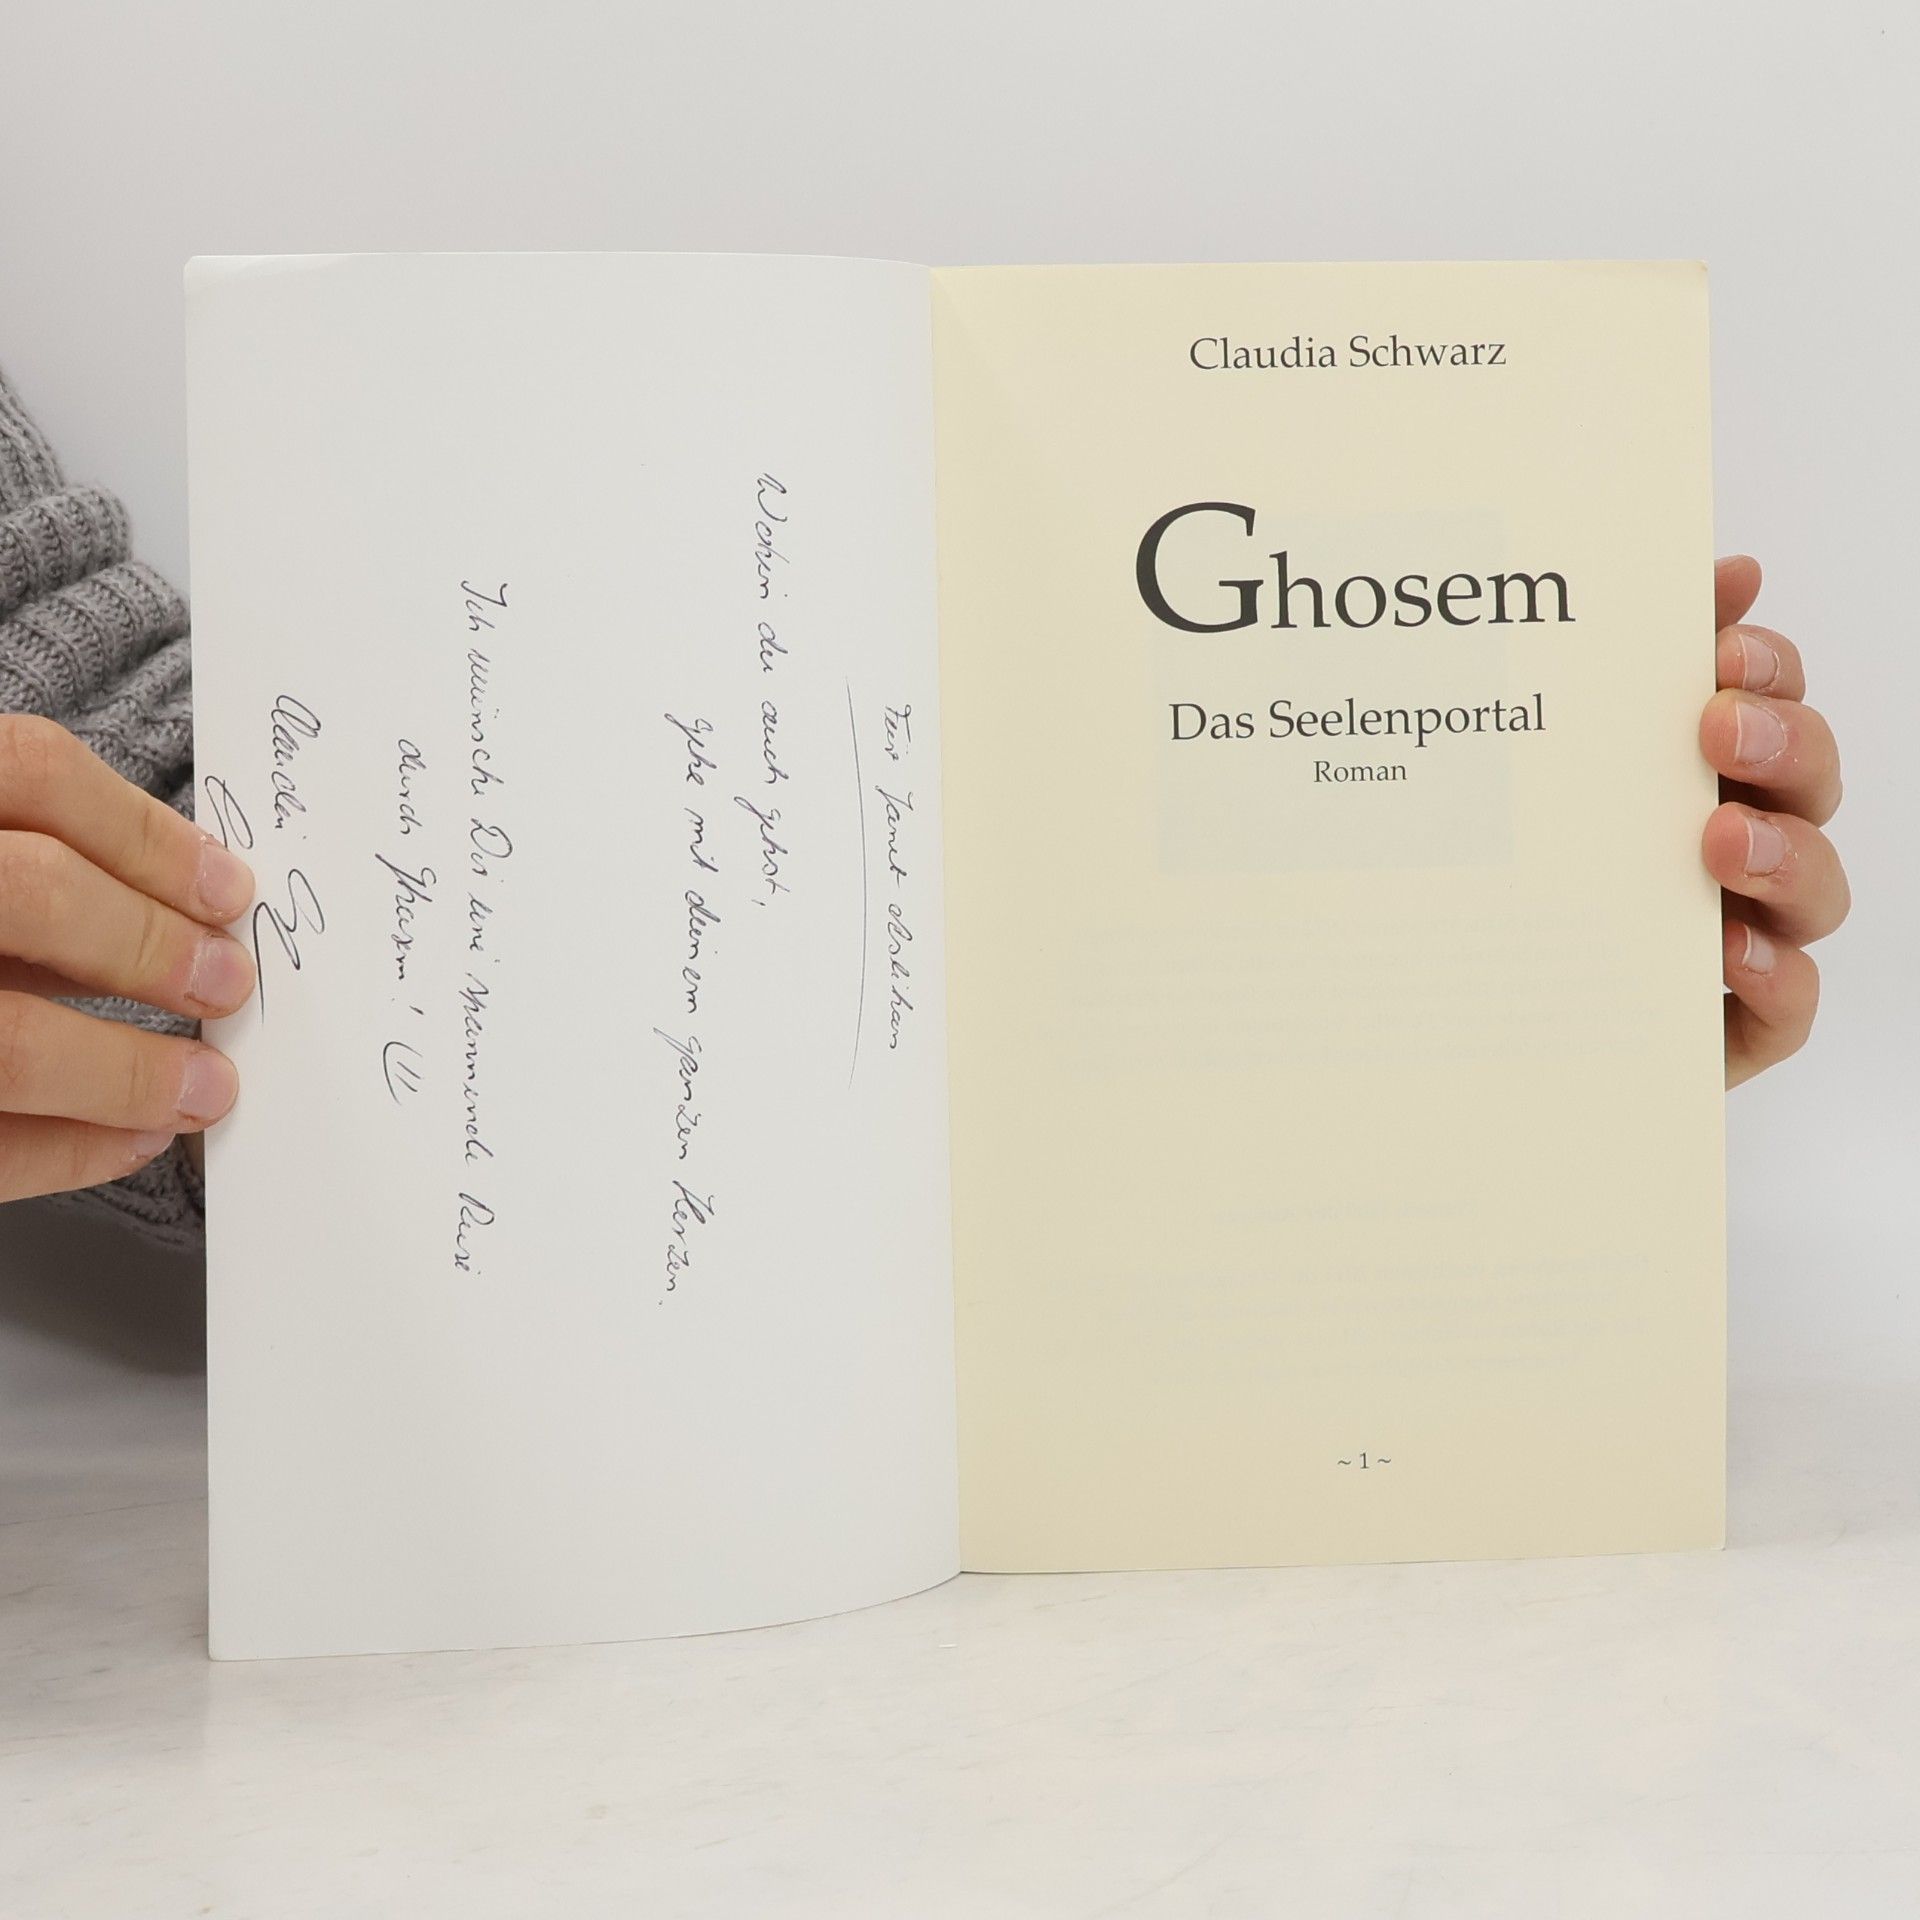 Für Janet Aslihan
Wohin du auch gehst,
gehe mit deinem ganzen Herzen.
Ich wünsche Dir eine spannende Reise
durch Ghosem!
Claudia
Claudia Schwarz
Ghosem
Das Seelenportal
Roman
~ 1 ~